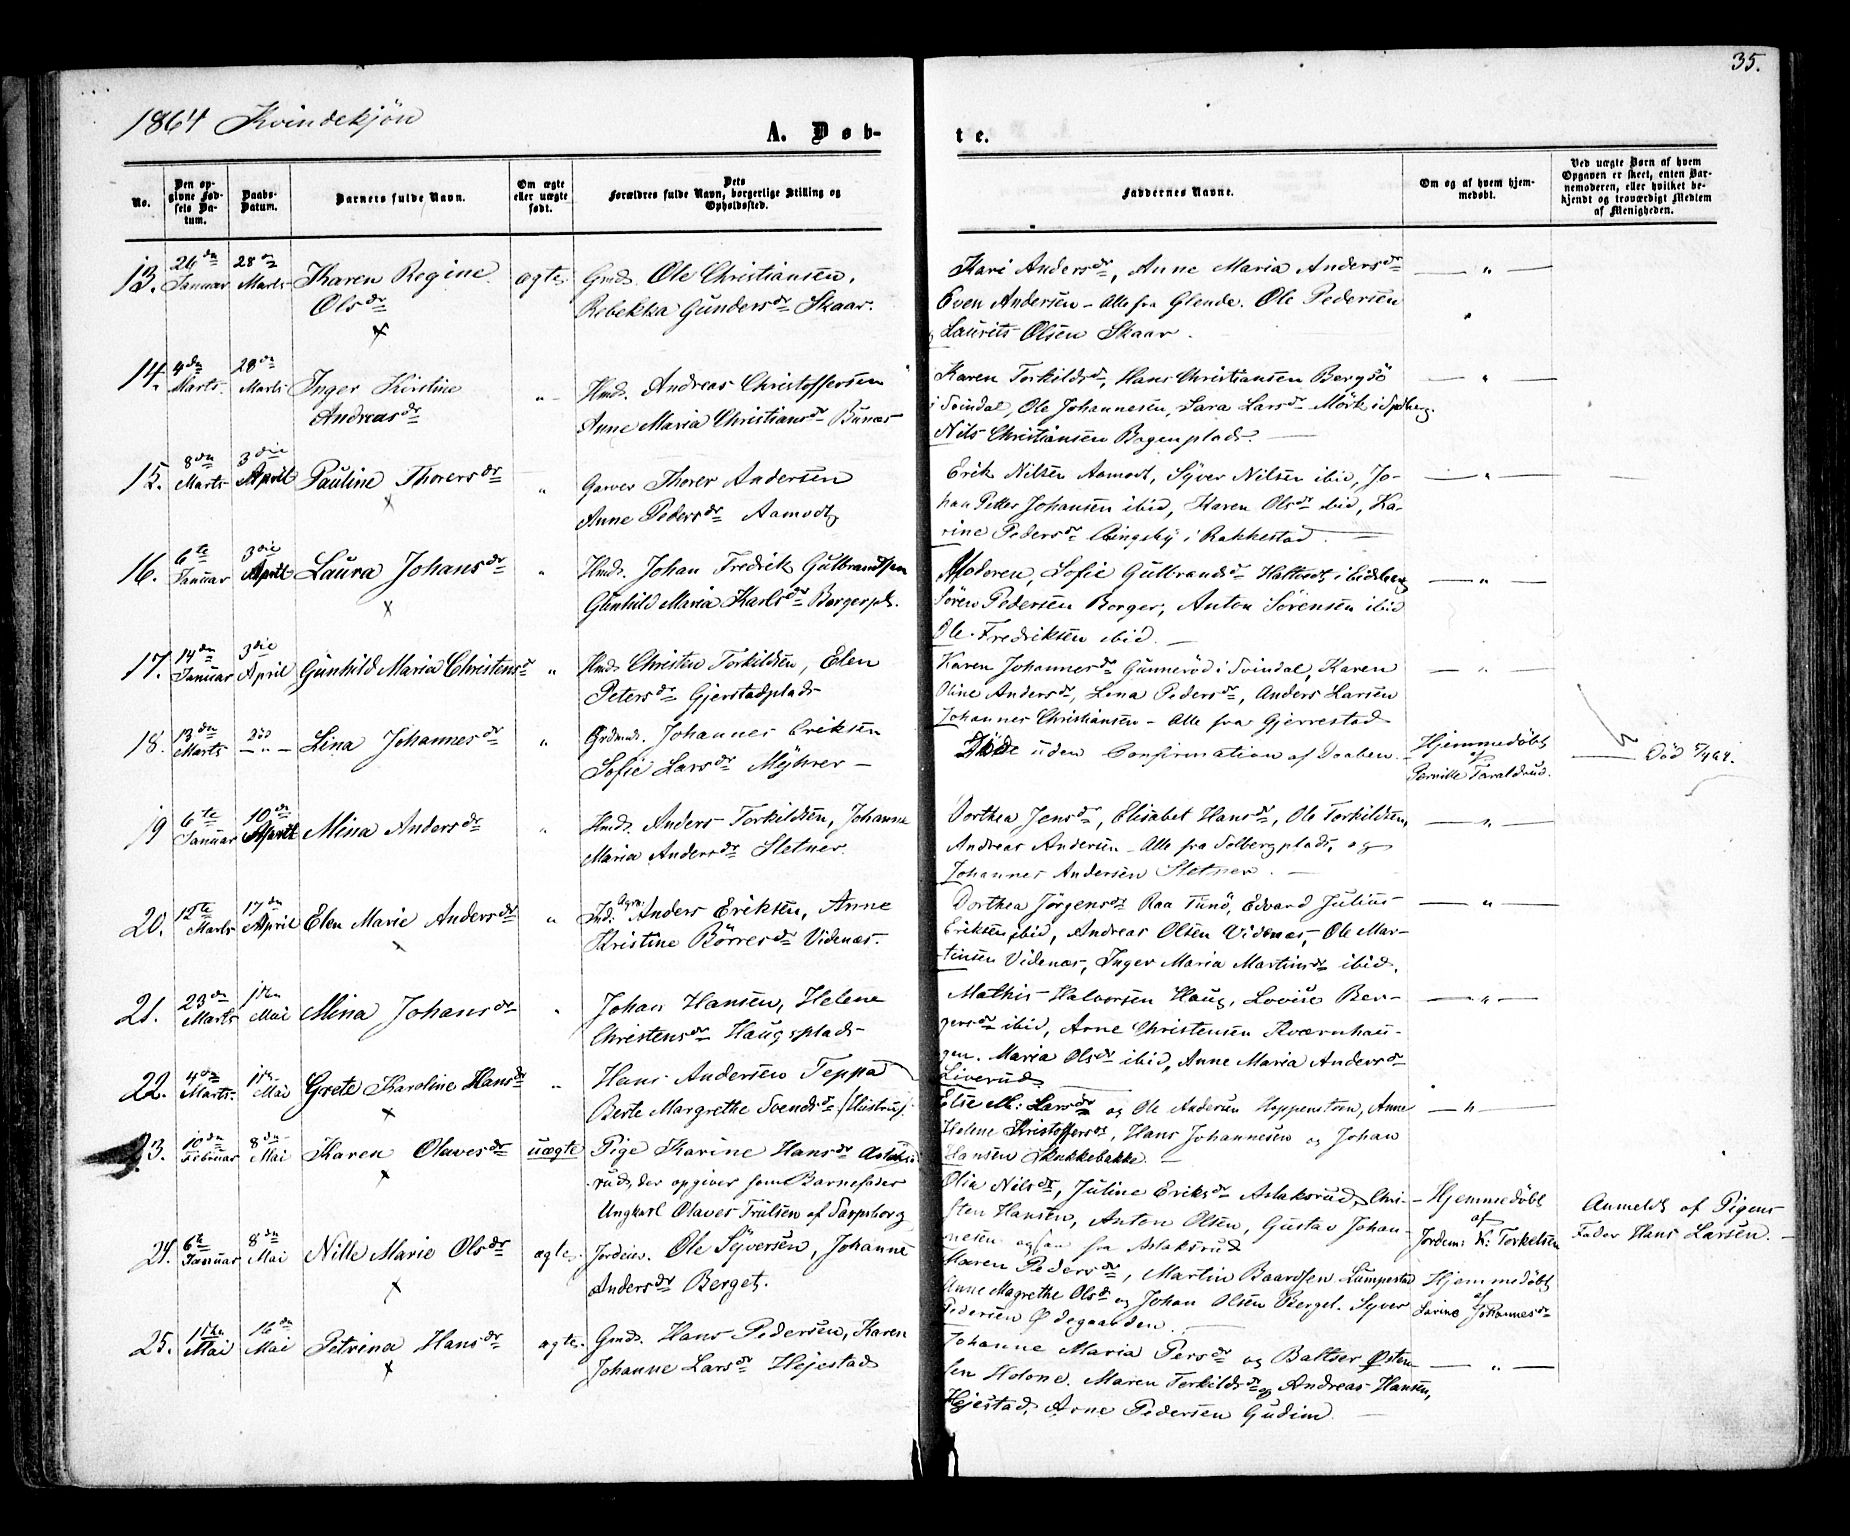 35.
1864 Kvindekjøn
A. Døb-
te.
No.
Den op-
givne Fød-
sels Da-
tum.
Daabs-
Datum.
Barnets fulde Navn.
Om ægte
eller uægte
født.
Dets
Forældres fulde Navn, borgerlige Stilling og
Opholdssted.
Faddernes Navne.
Om og af hvem hjem-
medøbt.
Ved uægte Børn af hvem
Opgaven er skeet, enten Bar-
nemoderen, eller hvilket be-
kjendt og troværdigt Medlem
af Menigheden.
13. 26de Januar 28de Marts Karen Regine ægte. Gmd. Ole Christiansen,
Olsdr Rebekka Gundersdr Skaar.
Kari Andersdr, Anne Maria Andersdr — " —
Even Andersen - Alle fra Glende. Ole Pedersen
Laurits Olsen Skaar.
14. 4de Marts. 28de Marts Inger Kirstine " Hmd. Andreas Christoffersen
Andreasdr Anne Maria Christiansdr Bunæs
Karen Torkildsdr, Hans Christiansen Bergsö — " —
i Svindal, Ole Johannesen, Sara Larsdr Mörk i Spdberg.
Nils Christiansen Bogenplads.
15. 8de Marts 3die April Pauline Thorersdr " Garver Thorer Andersen
Anne Pedersdr Aamodt
Erik Nilsen Aamodt, Syver Nilsen ibid, Jo- — " —
han Petter Johansen ibid, Karen Olsdr ibid, Ka-
rine Pedersdr i Rakkestad.
16. 6te Januar 3die April Laura Johansdr " Hmd. Johan Fredrik Gulbrandsen
Gunhild Maria Karlsdr Borgerpl.
Moderen, Sofie Gulbrandsdr — " —
Sören Pedersen Borger, Anton Sörensen ibid
Ole Fredriksen ibid.
17. 14de Januar 3die April Gunhild Maria Christensdr " Hmd. Christen Torkildsen, Elen
Petersdr Gjerstadplads
Karen Johannesdr Gunneröd i Svindal, Karen — " —
Oline Andersdr, Lena Pedersdr, Anders Larsen
Johannes Christiansen - Alle fra Gjerrestad
18. 13de Marts — " — Lina Johannesdr " Grdmd. Johannes Eriksen
Sofie Larsdr Myhrer
Døde uden Confirmation af Daaben. Hjemmedøbt
af
Pernille Taraldrud. Død 5/4 64.
19 6te Januar 10de April Mina Andersdr " Hmd. Anders Torkildsen, Johanne
Maria Andersdr Sletner.
Dorthea Jensdr, Elisabet Hansdr, Ole Torkildsen, — " —
Andreas Andersen - Alle fra Solbergplads, og
Johannes Andersen Sletner.
20. 12te Marts 17de April Elen Marie Andersdr " Ind. Anders Eriksen, Anne
Kristine Börresdr Videnæs.
Dorthea Jörgensdr Raa Tunö, Edvard Julius — " —
Eriksen ibid, Andreas Olsen Videnæs, Ole Mar-
tinsen Videnæs, Inger Maria Martinsdr ibid.
21. 23de Marts 1ste Mai Mina Johansdr " Johan Hansen, Helene
Christensdr Haugsplads
Mathis Halvorsen Haug, Lovise Ber- — " —
gersdr ibid, Arne Christensen Kværnhau-
gen. Maria Olsdr ibid, Anne Maria Andersdr
Liverud.
22. 4de Marts. 1ste Mai Grete Karoline Hansdr " Hans Andersen Teppa
Berte Margrethe Svendsdr
Else M: Larsdr og Ole Andersen Hoppenstien, Anne — " —
Helene Kristoffersdr, Hans Johannesen og Johan
Hansen Skukkebakke.
23. 10de Februar 8de Mai Karen Olavesdr uægte Pige Karine Hansdr Aslaks-
rud, der opgiver som Barnefader
Ungkarl Olaves Trulsen af Sarpsborg
Olia Nilsdr, Juline Eriksdr Aslaksrud, Chri-
sten Hansen, Anton Olsen, Gustav Johan-
nesen ogsaa fra Aslaksrud
Hjemmedöbt
af
Jordem: K: Torkelsen
Anmeldt af Pigens
Fader Hans Larsen.
24. 6te Januar 8de Mai Nille Marie Olsdr ægte. Jordeier. Ole Syversen, Johanne
Andersdr Berget.
Maren Pedersdr, Martin Baardsen Lumpestad
Anne Magrethe Olsdr og Johan Olsen Berget. Syver
Pedersen Ödegaarden.
Hjemmedöbt
af
Larine Johannesdr
25. 1ste Mai 16de Mai Petrina Hansdr ægte. Gmd. Hans Pedersen, Karen
Johanne Larsdr Hejestad
Johanne Maria Persdr og Baltser Östen- — " —
sen Holone. Maren Torkildsdr og Andreas Hansen,
Hejestad, Arne Pedersen Gudim.